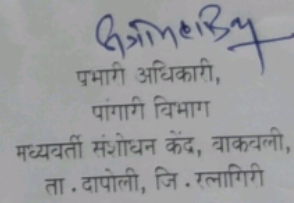 प्रभारी अधिकारी,
पांगारी विभाग
मध्यवर्ती संशोधन केंद्र, वाकवली,
ता . दापोली, जि . रत्नागिरी